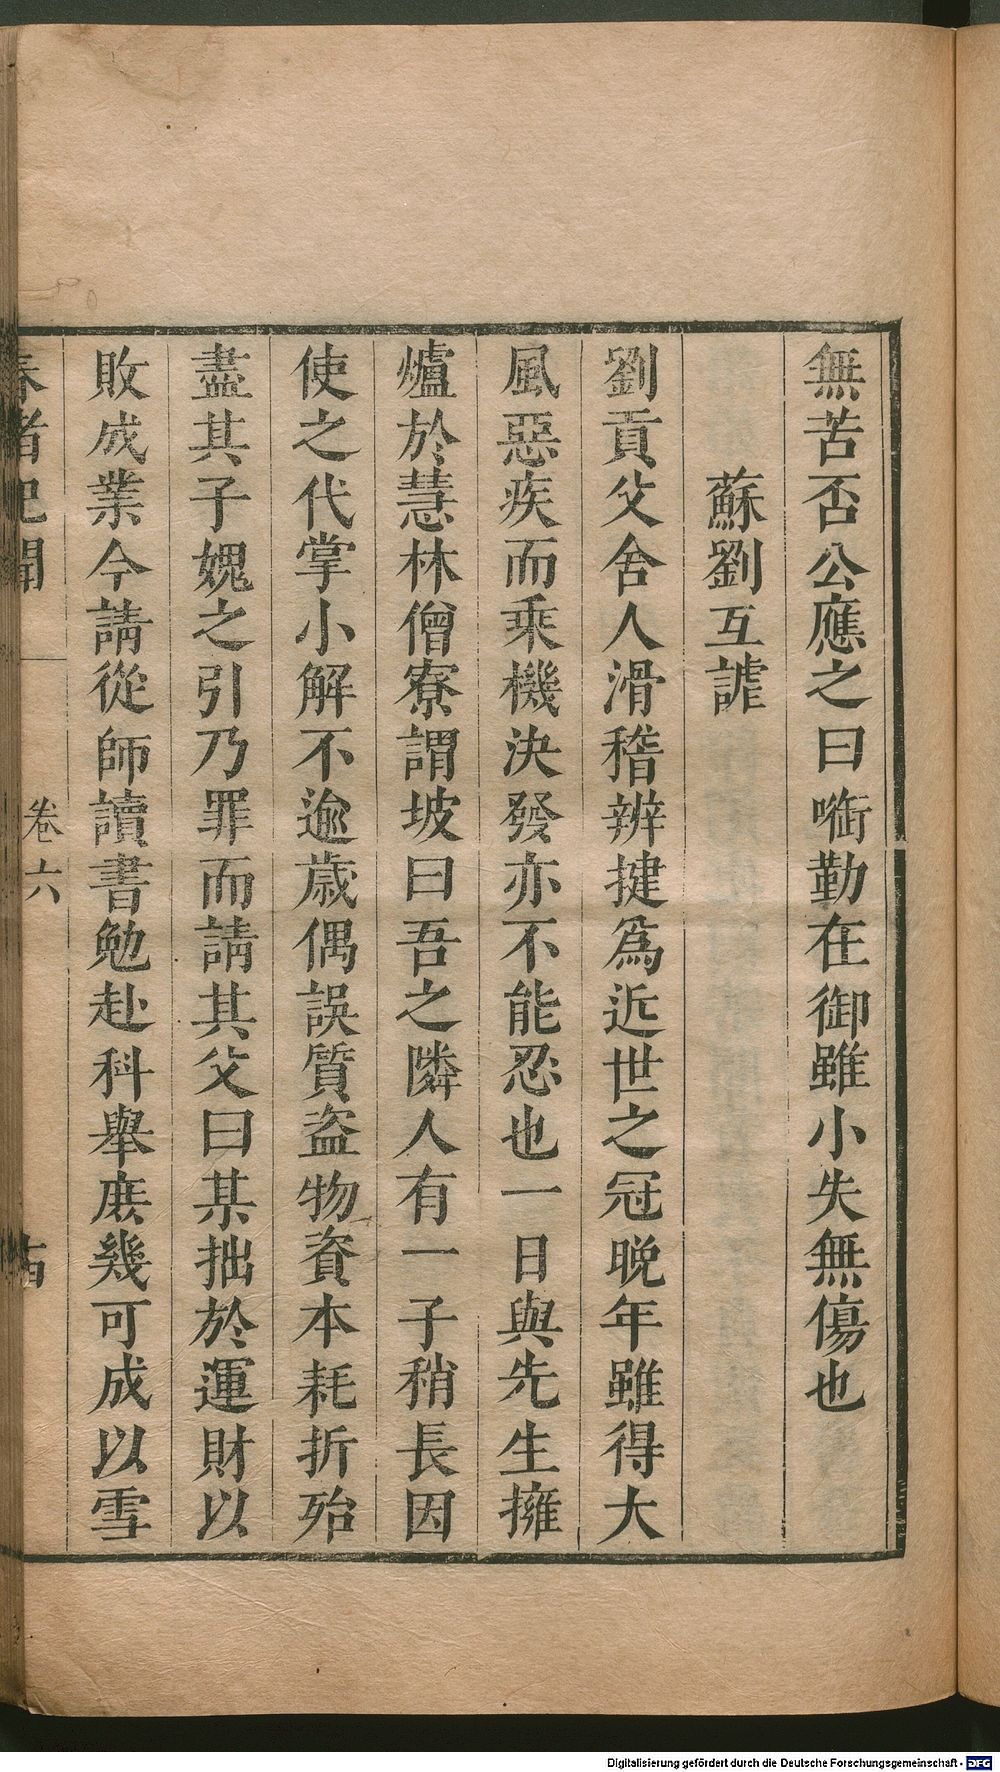 無苦否公應之曰嘞勤在御雖小失無傷也
蘇劉互謔
劉貢父舍人滑稽辨捷爲近世之冠晚年雖得大
風惡疾而乘機決發亦不能忍也一日與先生擁
爐於慧林僧寮謂坡曰吾之隣人有一子稍長因
使之代掌小解不逾歲偶誤質盗物資本耗折殆
盡其子媿之引乃罪而請其父曰某拙於運財以
敗成業今請從師讀書勉赴科舉庶幾可成以雪
春渚紀聞
卷六
Digitalisierung gefördert durch die Deutsche Forschungsgemeinschaft - DFG